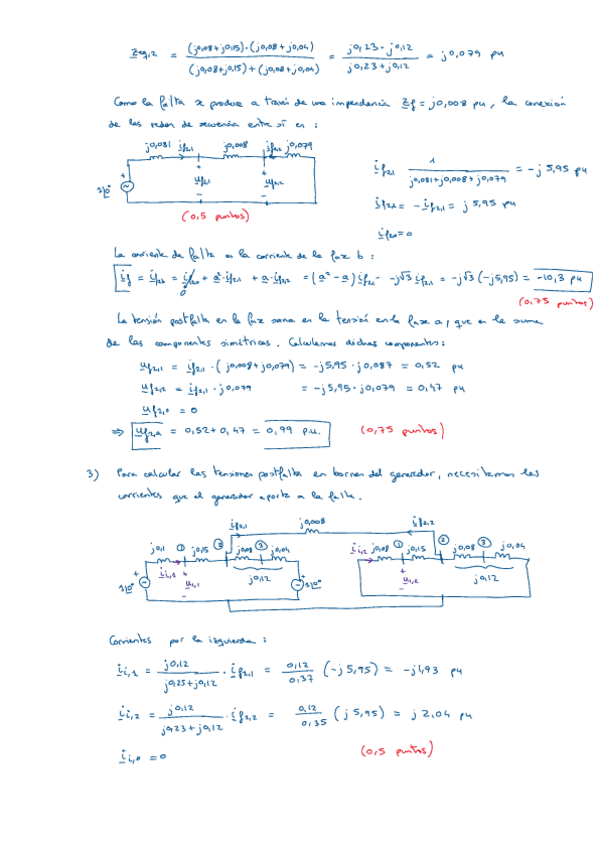 Zeq,2 = (j0,08+j0,15)·(j0,08+j0,04) / (j0,08+j0,15)+(j0,08+j0,04) = j0,23·j0,12 / j0,23+j0,12 = j0,079 pu
Como la falta se produce a través de una impedancia Zf = j0,008 pu, la conexión
de las redes de secuencia entre sí es:
j0,081 if2,1 j0,008 if2,2 j0,079
1∠0° + - + uf2,1 - + uf2,2 -
(0,5 puntos)
if2,1 = 1 / j0,081+j0,008+j0,079 = -j 5,95 pu
if2,2 = -if2,1 = j 5,95 pu
if2,0 = 0
La corriente de falta es la corriente de la fase b:
if = if2b = if2,0 + a²·if2,1 + a·if2,2 = (a²-a) if2,1 = -j√3 if2,1 = -j√3 (-j5,95) = -10,3 pu
0
(0,75 puntos)
La tensión postfalta en la fase sana es la tensión en la fase a, que es la suma
de las componentes simétricas. Calculamos dichas componentes:
uf2,1 = if2,1 · (j0,008+j0,079) = -j5,95 · j0,087 = 0,52 pu
uf2,2 = if2,1 · j0,079 = -j5,95 · j0,079 = 0,47 pu
uf2,0 = 0
⇒ uf2,a = 0,52 + 0,47 = 0,99 p.u. (0,75 puntos)
3) Para calcular las tensiones postfalta en bornes del generador, necesitamos las
corrientes que el generador aporta a la falta.
if2,1 j0,008 if2,2
j0,1 ① j0,15 ② j0,08 ③ j0,04 ii,2 j0,08 ① j0,15 ② j0,08 ③ j0,04
1∠0° + - ii,1 + u1,1 - j0,12 1∠0° + - + u1,2 - j0,12
Corrientes por la izquierda:
ii,1 = j0,12 / j0,25+j0,12 · if2,1 = 0,12 / 0,37 (-j5,95) = -j1,93 pu
ii,2 = j0,12 / j0,23+j0,12 · if2,2 = 0,12 / 0,35 (j 5,95) = j 2,04 pu
ii,0 = 0
(0,5 puntos)